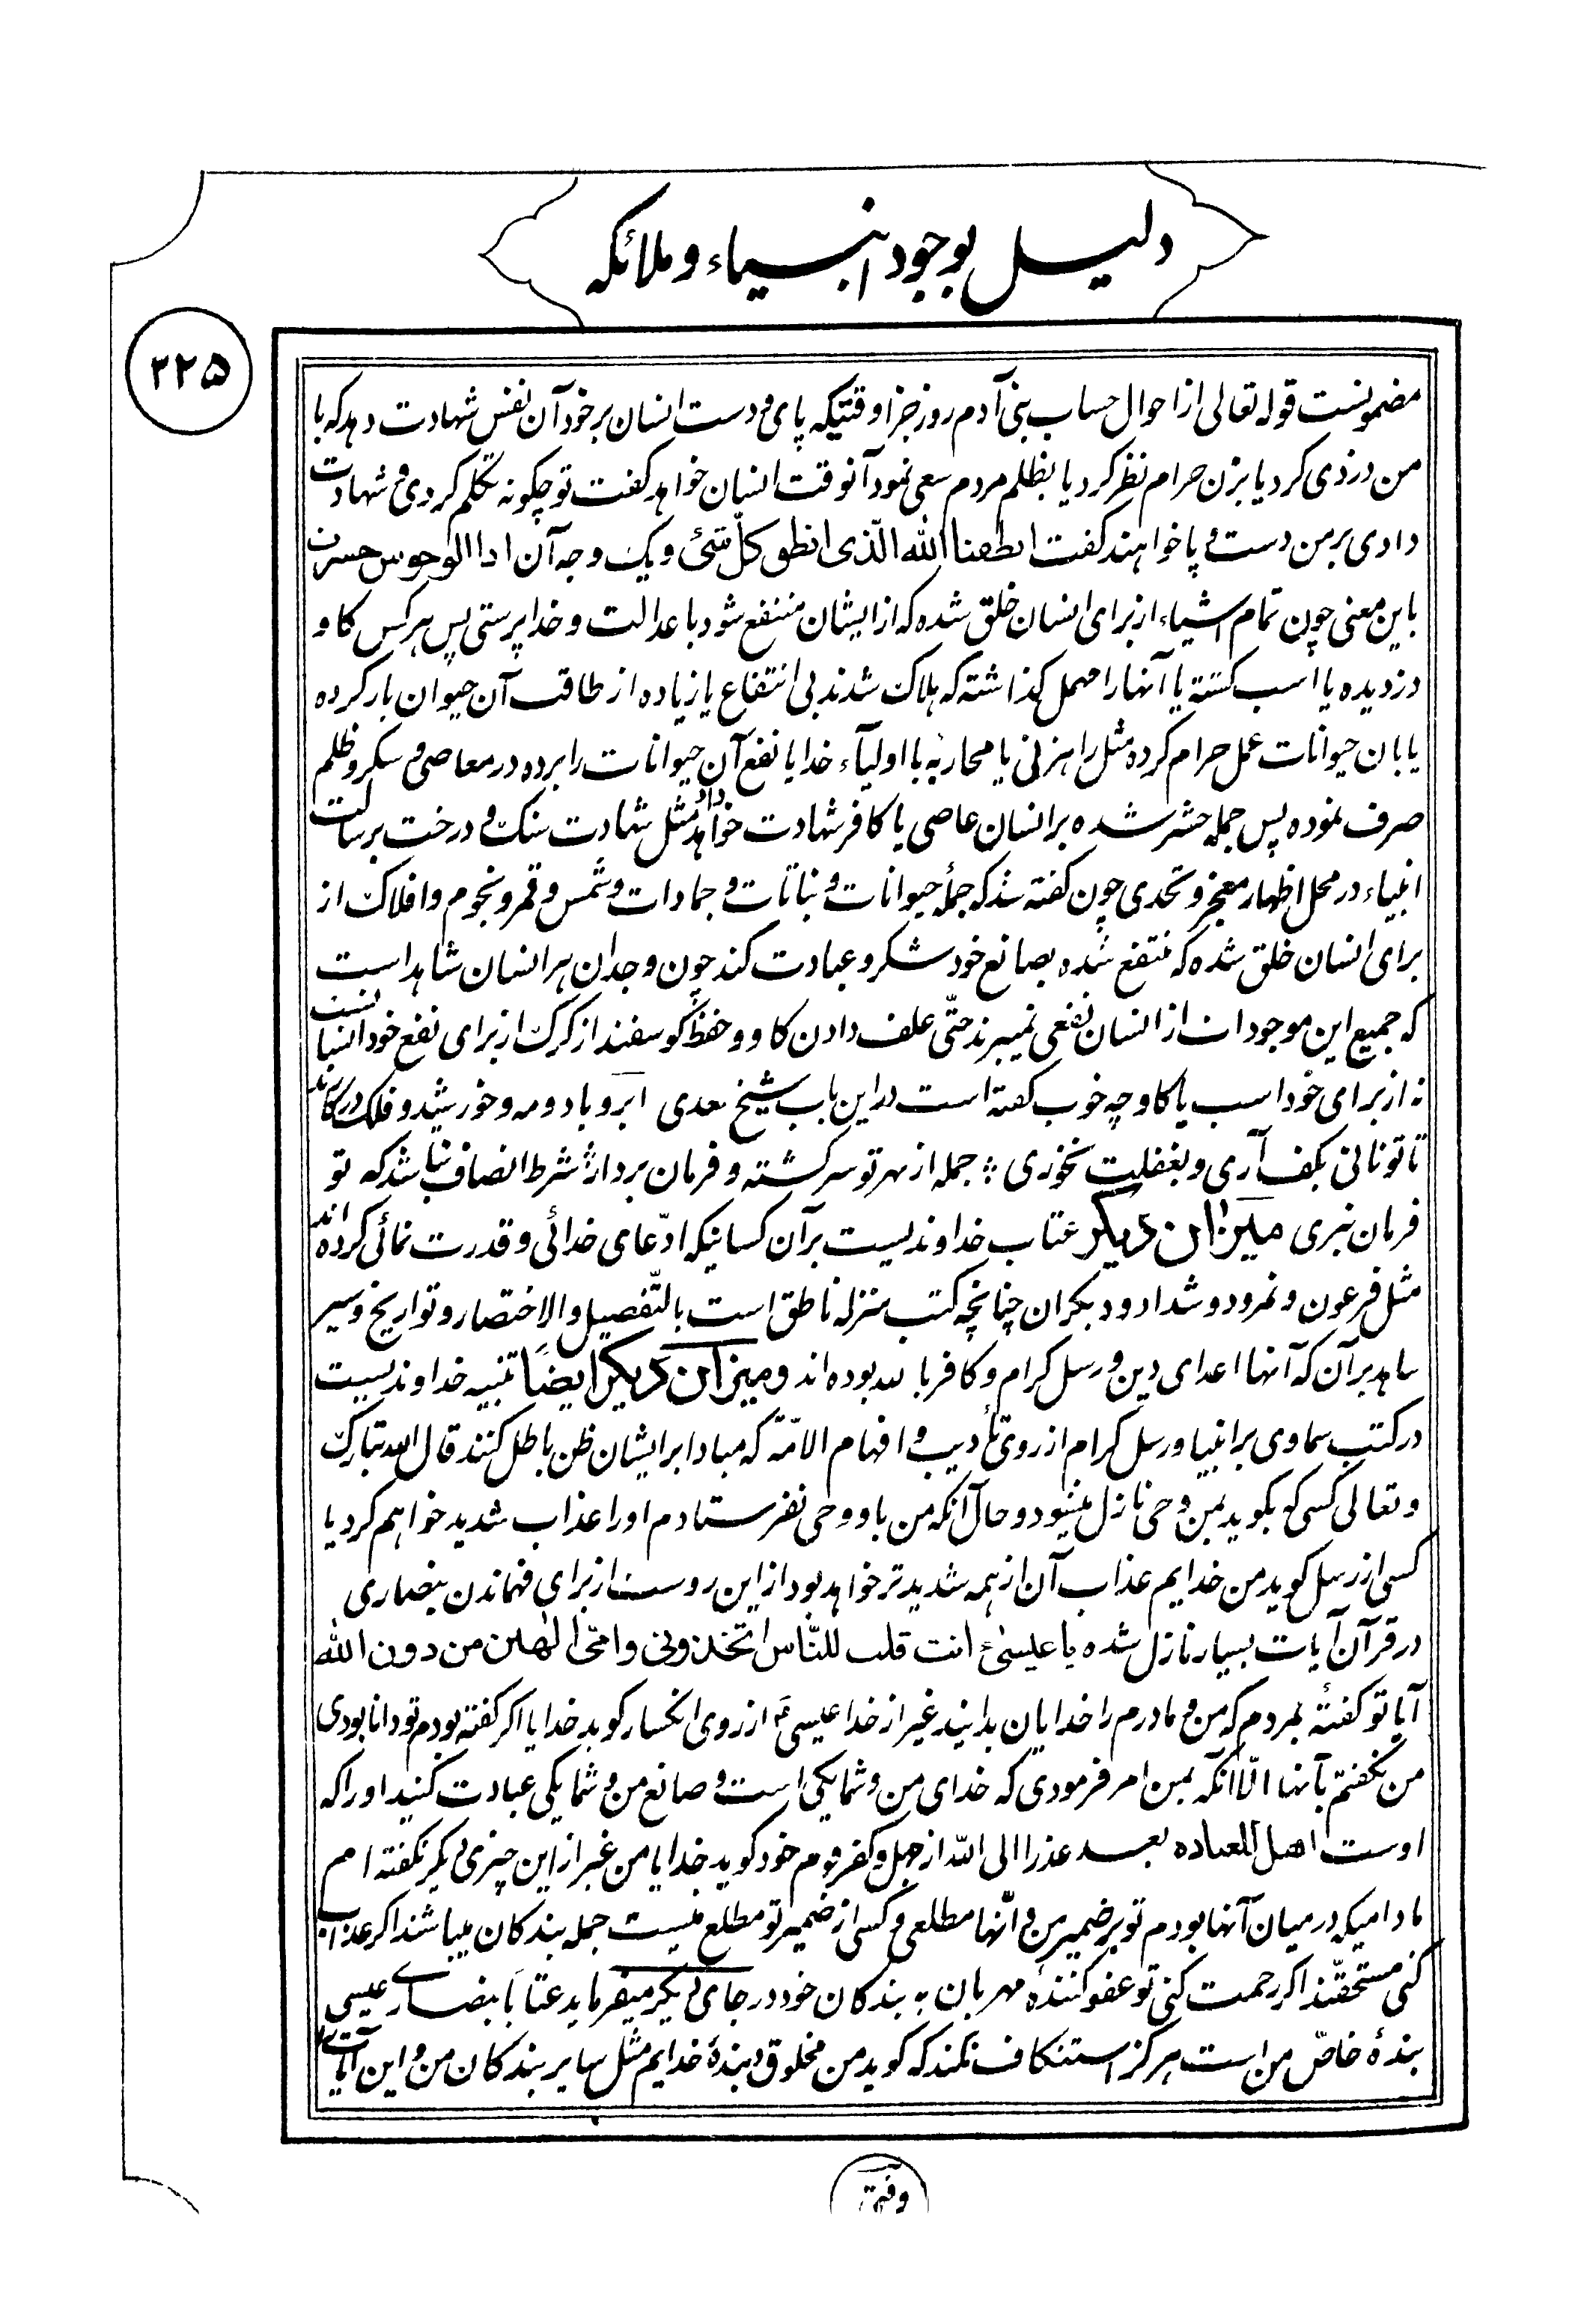 دلیل بوجود انبیاء و ملائکه
۲۲۵
مضمونست قوله تعالی از احوال حساب بنی آدم روز جزا وقتیکه پای و دست انسان بر خود آن نفس شهادت دهد که با
من دزدی کرد یا بزن حرام نظر کرد یا بظلم مردم سعی نمود آنوقت انسان خواهد کفت تو چکونه تکلم کردی و شهادت
دادی بر من دست و پا خواهند کفت انطقنا الله الّذی انطق کلّ شئ و یک وجه آن اذا الوحوش حشرت
باین معنی چون تمام اشیاء از برای انسان خلق شده که از ایشان منتفع شود با عدالت و خدا پرستی پس هر کس کاو
دزدیده یا اسب کشته یا آنها را مهمل کذاشته که هلاک شدند بی انتفاع یا زیاده از طاقت آن حیوان بار کرده
یا بان حیوانات عمل حرام کرده مثل راهزنی یا محاربه با اولیآء خدا یا نفع آن حیوانات را برده در معاصی و سکر و ظلم
صرف نموده پس جمله حشر شده بر انسان عاصی یا کافر شهادت خواهند داد مثل شهادت سنک و درخت برسالت
انبیاء در محل اظهار معجز و تحدی چون کفته شد که جملهٔ حیوانات و نباتات و جمادات و شمس و قمر و نجوم و افلاک از
برای انسان خلق شده که منتفع شده بصانع خود شکر و عبادت کند چون وجدان هر انسان شاهد است
که جمیع این موجودات از انسان نفعی نمیبرند حتّی علف دادن کاو و حفظ کوسفند از کرک از برای نفع خود انسانست
نه از برای خود اسب یا کاو چه خوب کفته است در این باب شیخ سعدی ابر و باد و مه و خورشید و فلک در کارند
تا تو نانی بکف آری و بغفلت نخوری ؛ جمله از بهر تو سرکشته و فرمان بردار ؛ شرط انصاف نباشد که تو
فرمان نبری میزان دیگر عتاب خداوندیست بر آن کسانیکه ادّعای خدائی و قدرت نمائی کرده اند
مثل فرعون و نمرود و شداد و دیکران چنانچه کتب منزله ناطق است بالتّفصیل والاختصار و تواریخ و سیر
شاهد بر آن که آنها اعدای دین و رسل کرام و کافر بالله بوده اند و میزان دیگر ایضًا تنبیه خداوندیست
در کتب سماوی بر انبیا و رسل کرام از روی تأدیب و افهام الامّة که مبادا بر ایشان ظن باطل کنند قال الله تبارک
و تعالی کسی که بکوید بمن وحی نازل میشود و حال آنکه من باو وحی نفرستادم او را عذاب شدید خواهم کرد یا
کسی از رسل کوید من خدایم عذاب آن از همه شدیدتر خواهد بود از این روست از برای فهماندن بنصاری
در قرآن آیات بسیار نازل شده یا عیسیٰ ءانت قلت للنّاس اتّخذونی و امّی الٰهین من دون الله
آیا تو کفتهٔ بمردم که من و مادرم را خدایان بدانید غیر از خدا عیسیٰ ع از روی انکسار کوید خدایا اکر کفته بودم تو دانا بودی
من نکفتم بآنها الّا آنکه بمن امر فرمودی که خدای من و شما یکی است و صانع من و شما یکی عبادت کنید او را که
اوست اهل العباده بعد عذرا الی الله از جهل و کفر قوم خود کوید خدایا من غیر از این چیزی دیکر نکفته ام
مادامیکه در میان آنها بودم تو بر ضمیر من و آنها مطلعی و کسی از ضمیر تو مطلع نیست جمله بندکان میباشند اکر عذاب
کنی مستحقّند اکر رحمت کنی تو عفو کنندهٔ مهربان به بندکان خود در جای دیکر میفرماید عتابًا بنصاری عیسی
بندهٔ خاصّ من است هرکز استنکاف نکند که کوید من مخلوق و بندهٔ خدایم مثل سایر بندکان من و این آیات